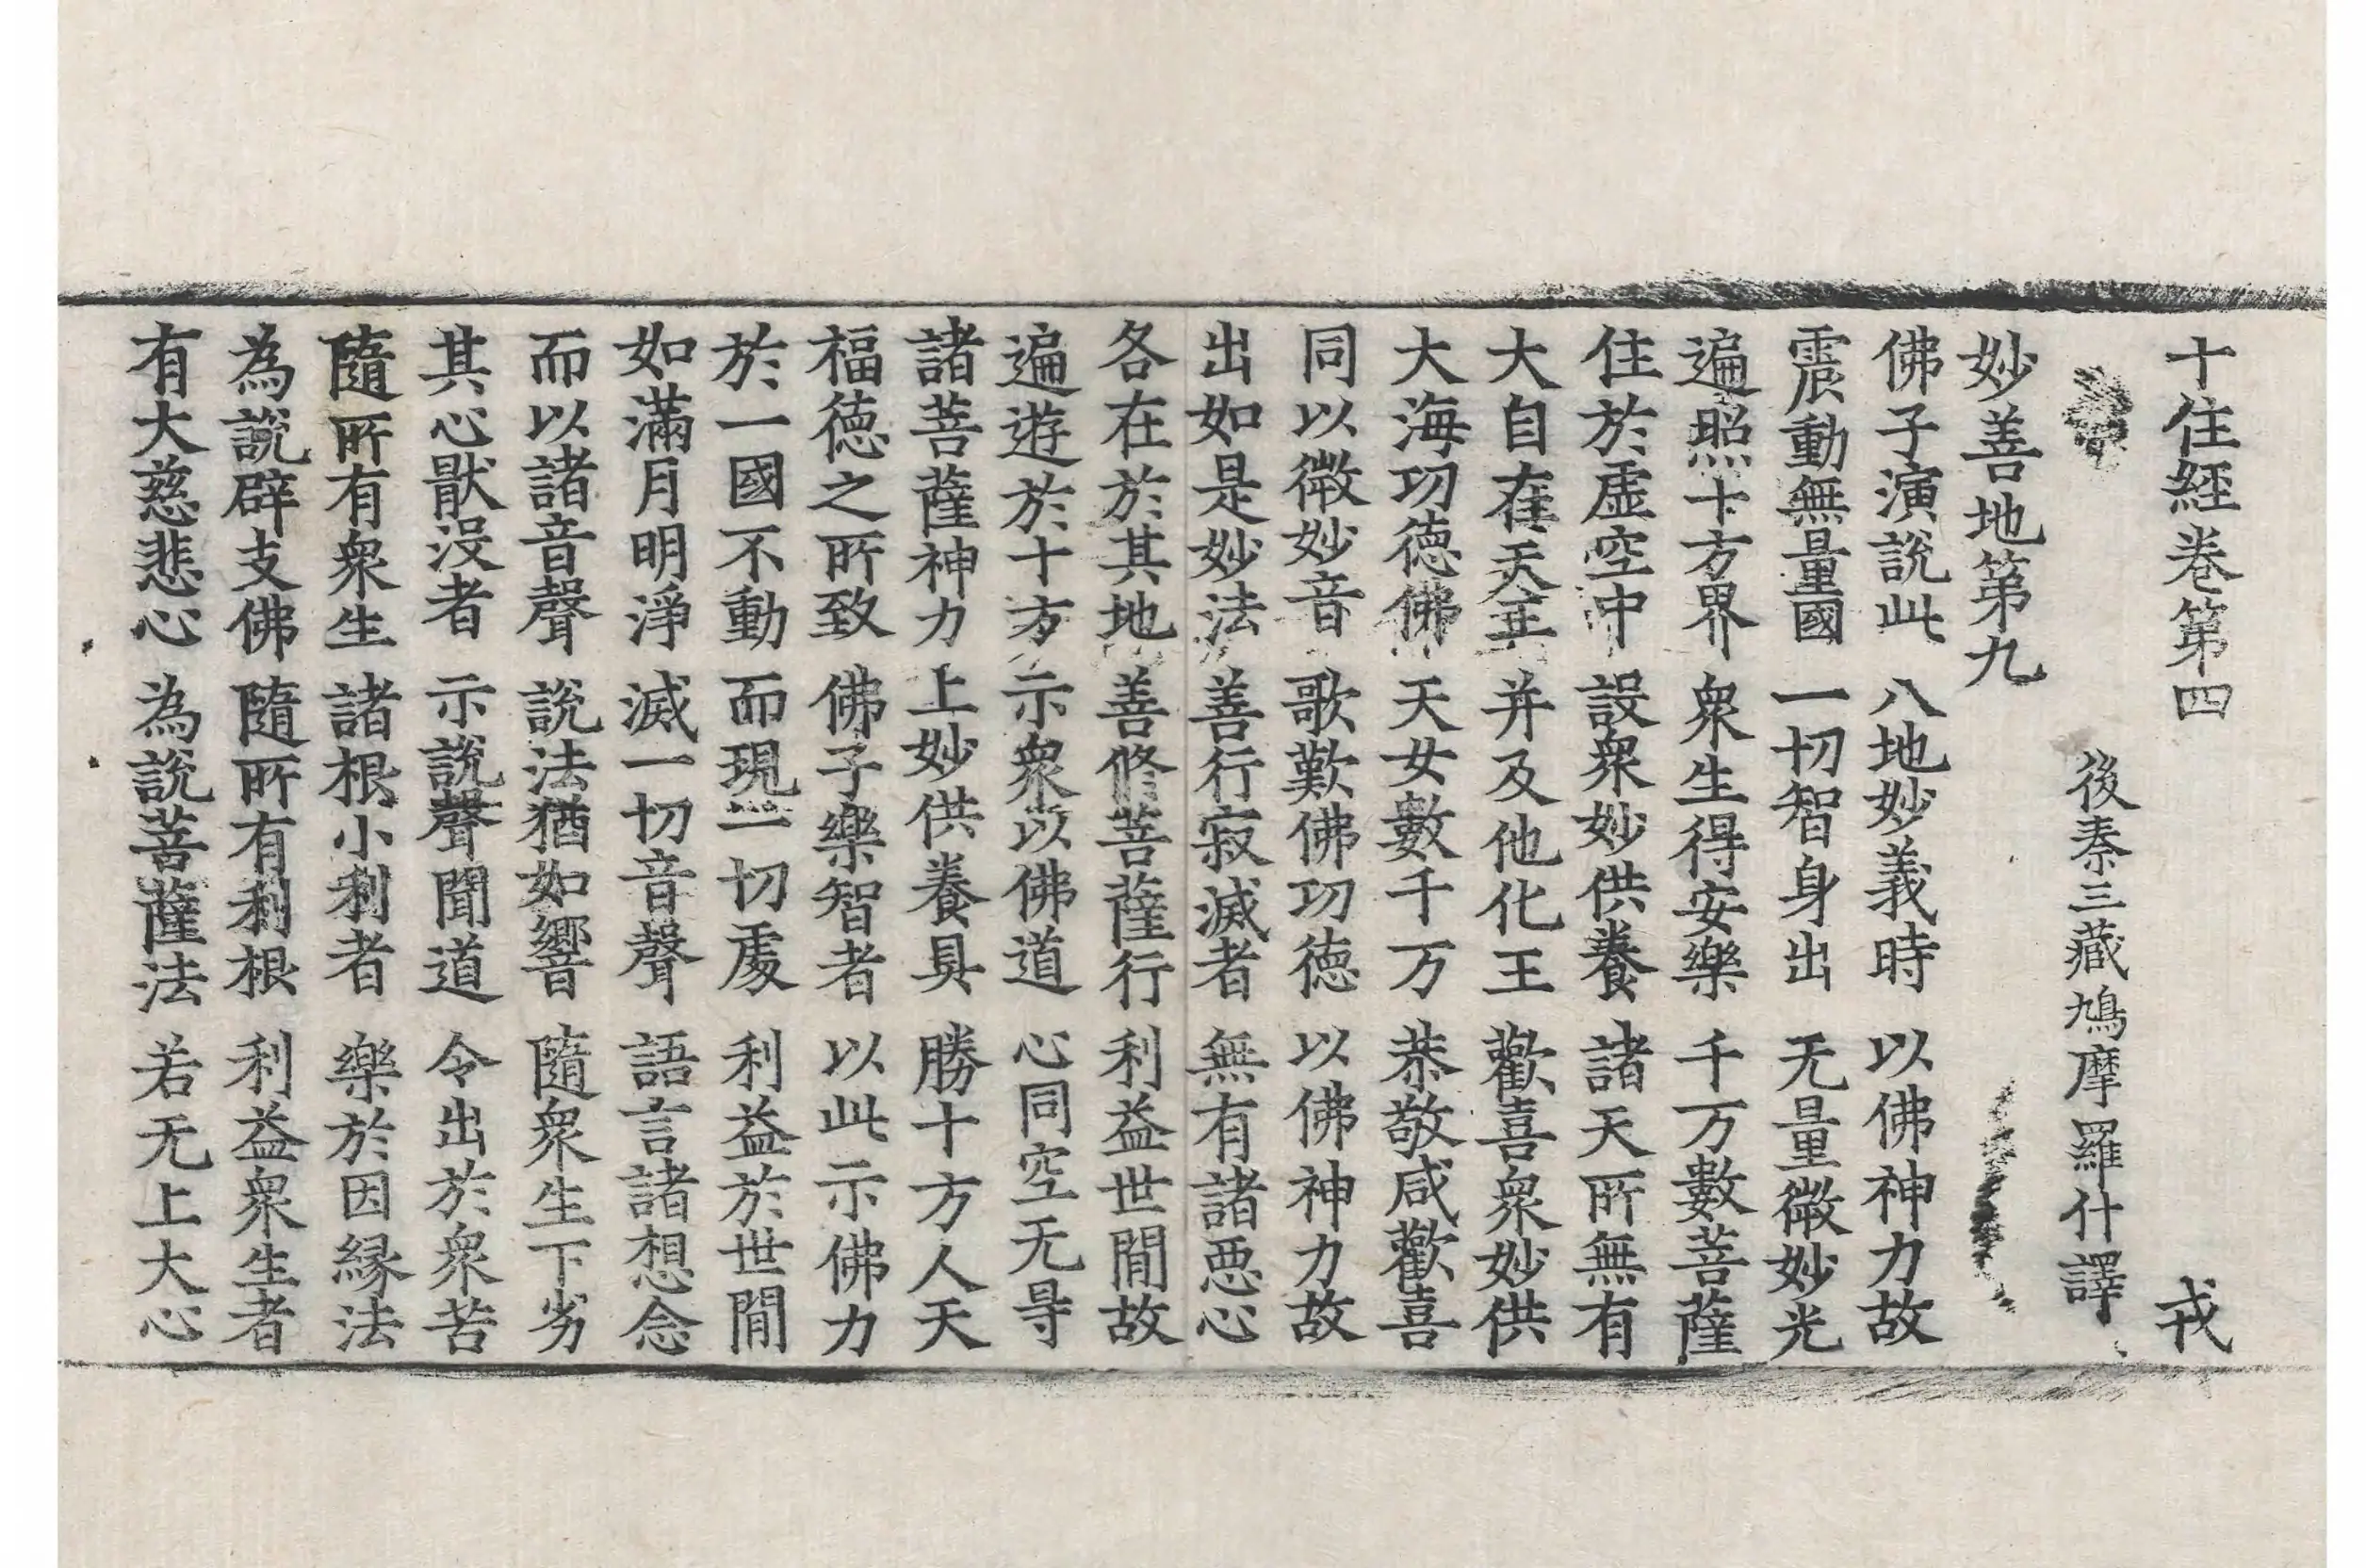 十住經卷第四 戎
後秦三藏鳩摩羅什譯
妙善地第九
佛子演說此 八地妙義時 以佛神力故
震動無量國 一切智身出 无量微妙光
遍照十方界 衆生得安樂 千万數菩薩
住於虛空中 設衆妙供養 諸天所無有
大自在天王 并及他化王 歡喜衆妙供
大海功德佛 天女數千万 恭敬咸歡喜
同以微妙音 歌歎佛功德 以佛神力故
出如是妙法 善行寂滅者 無有諸惡心
各在於其地 善修菩薩行 利益世間故
遍遊於十方 示衆以佛道 心同空无㝵
諸菩薩神力 上妙供養具 勝十方人天
福德之所致 佛子樂智者 以此示佛力
於一國不動 而現一切處 利益於世間
如滿月明淨 滅一切音聲 語言諸想念
而以諸音聲 說法猶如響 隨衆生下劣
其心猒沒者 示說聲聞道 令出於衆苦
隨所有衆生 諸根小利者 樂於因緣法
為說辟支佛 隨所有利根 利益衆生者
有大慈悲心 為說菩薩法 若无上大心